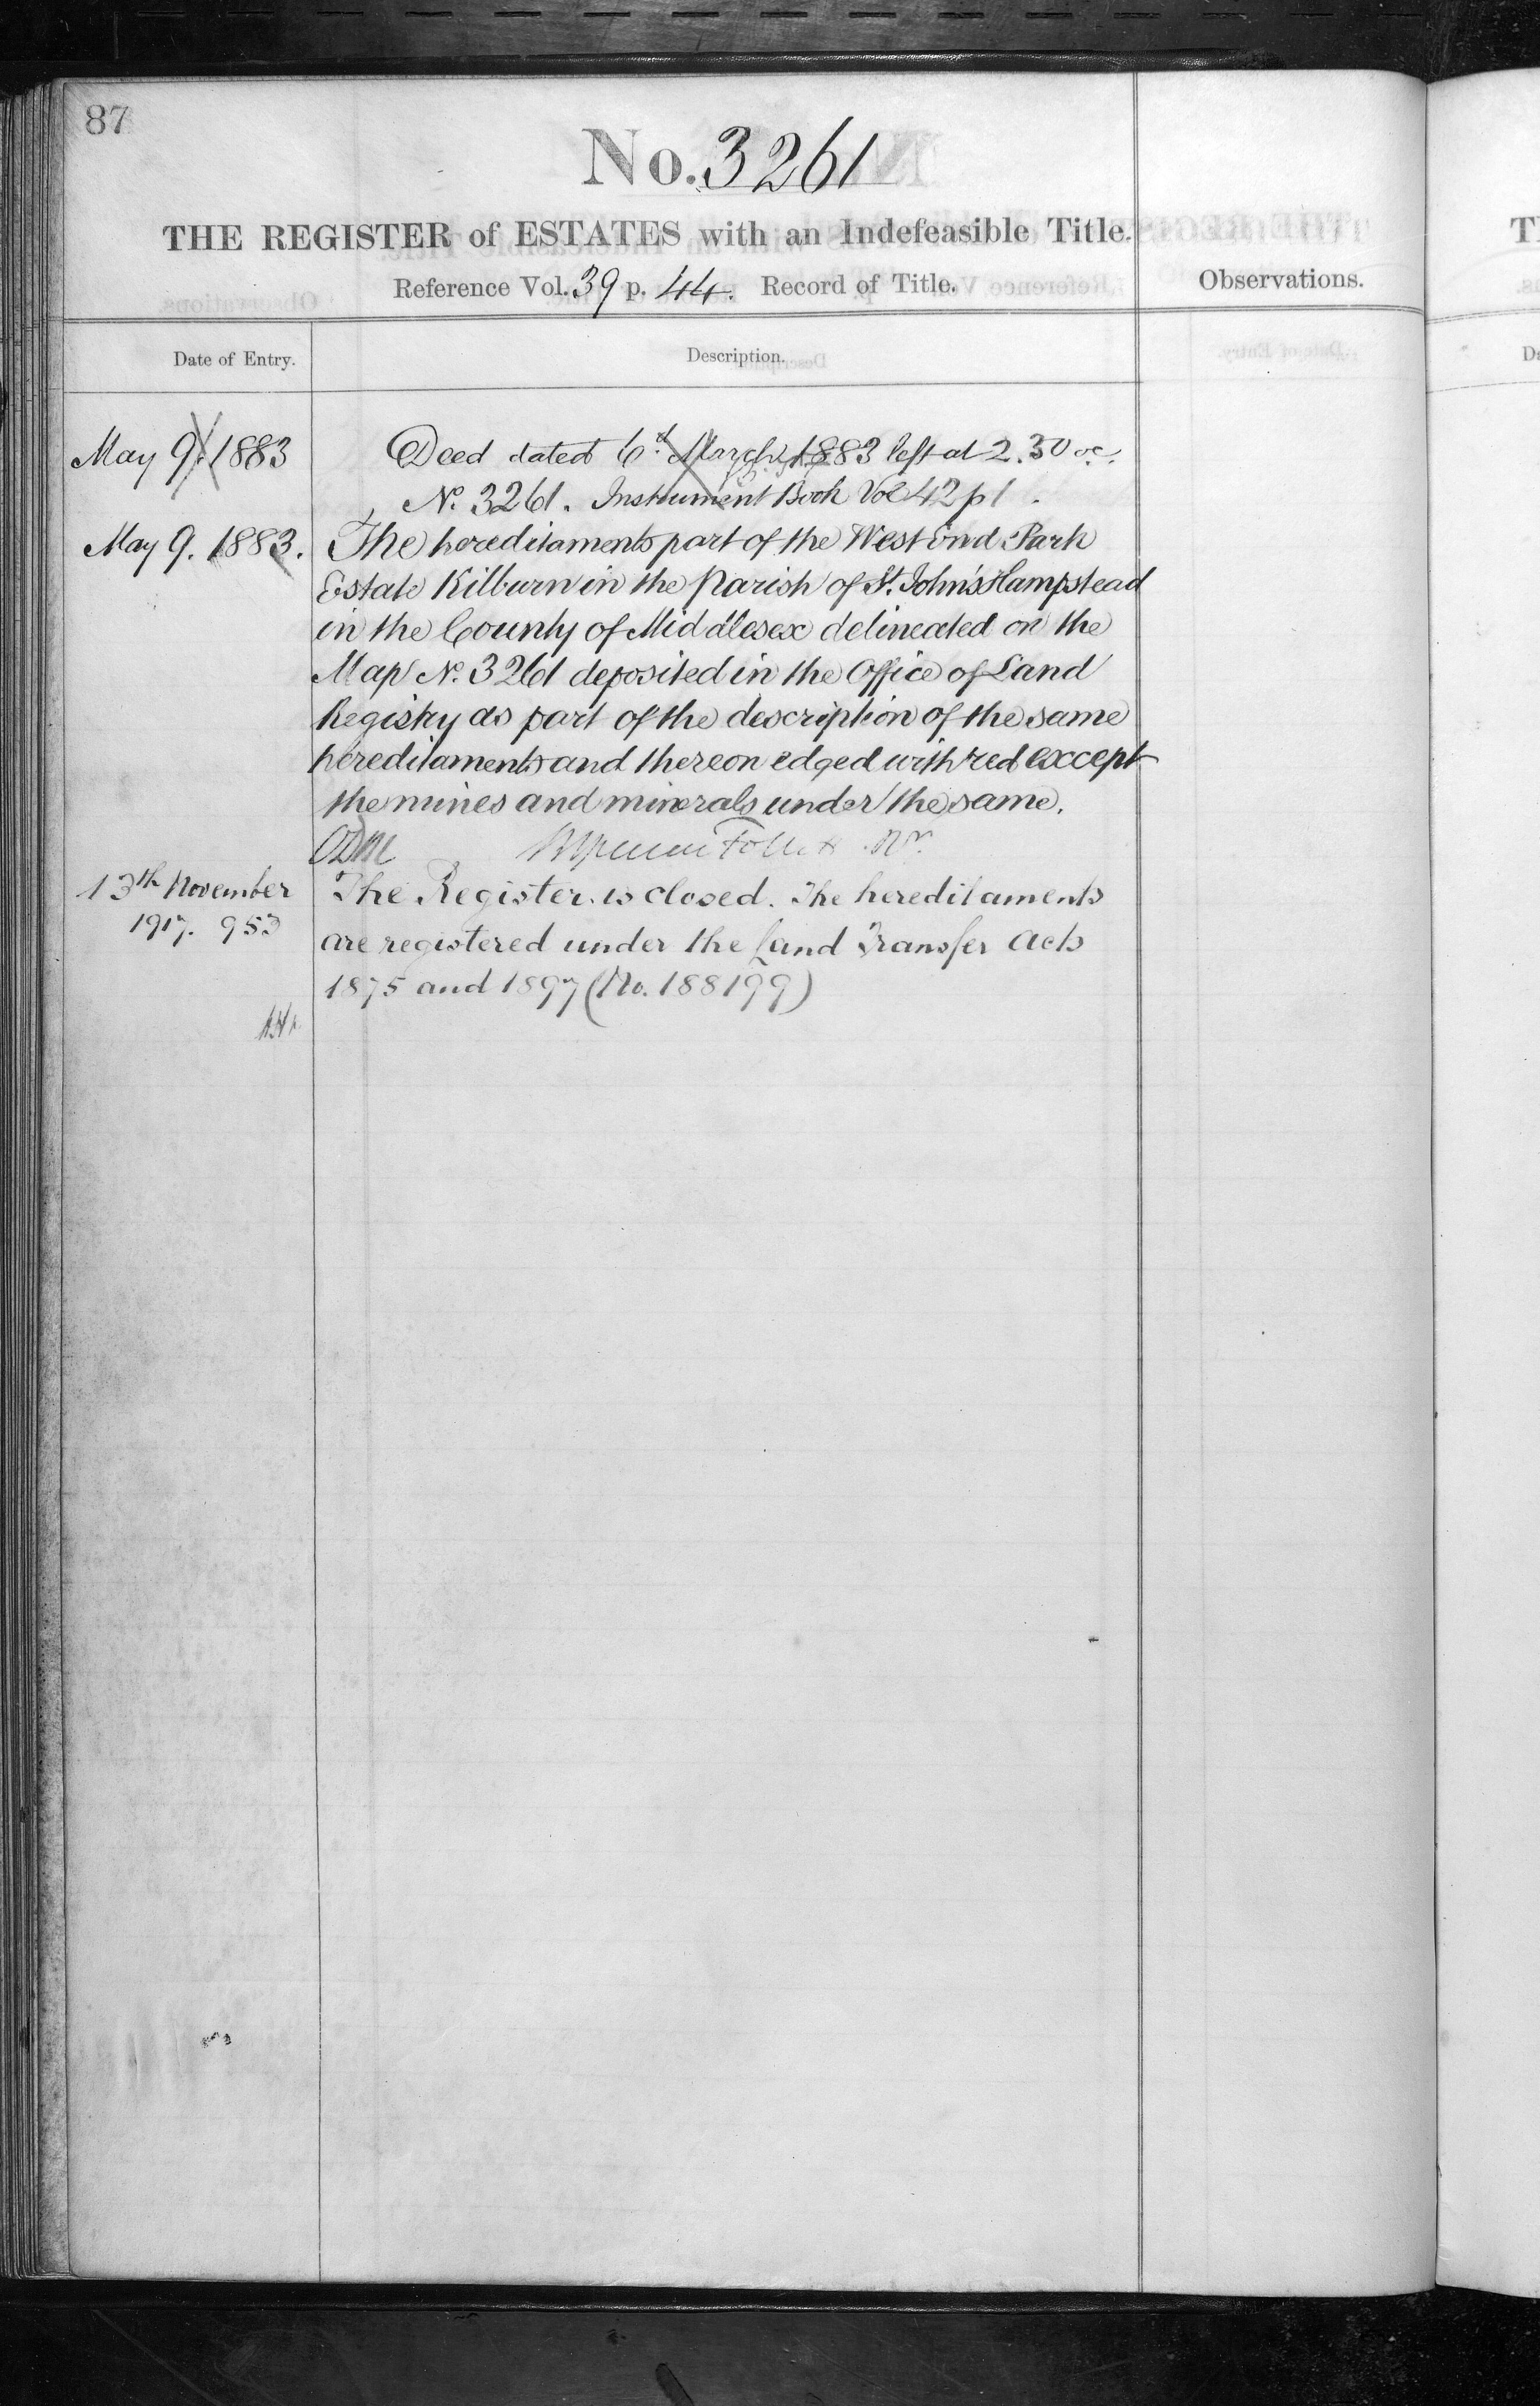 87
No. 3261
THE REGISTER of ESTATES with an Indefeasible Title.
Reference Vol. 39 p. 44. Record of Title.
Observations.
Date of Entry.
Description.
May 9. 1883
Deed dated 6th March 1883 left at 2.30 oc.
No. 3261. Instrument Book Vol 42 p 1.
May 9. 1883.
The hereditaments part of the West End Park
Estate Kilburn in the Parish of St. John's Hampstead
in the County of Middlesex delineated on the
Map No. 3261 deposited in the Office of Land
Registry as part of the description of the same
hereditaments and thereon edged with red except
the mines and minerals under the same.
Follett Rr.
13th November
1917. 953
The Register is closed. The hereditaments
are registered under the Land Transfer Acts
1875 and 1897 (No. 188199)